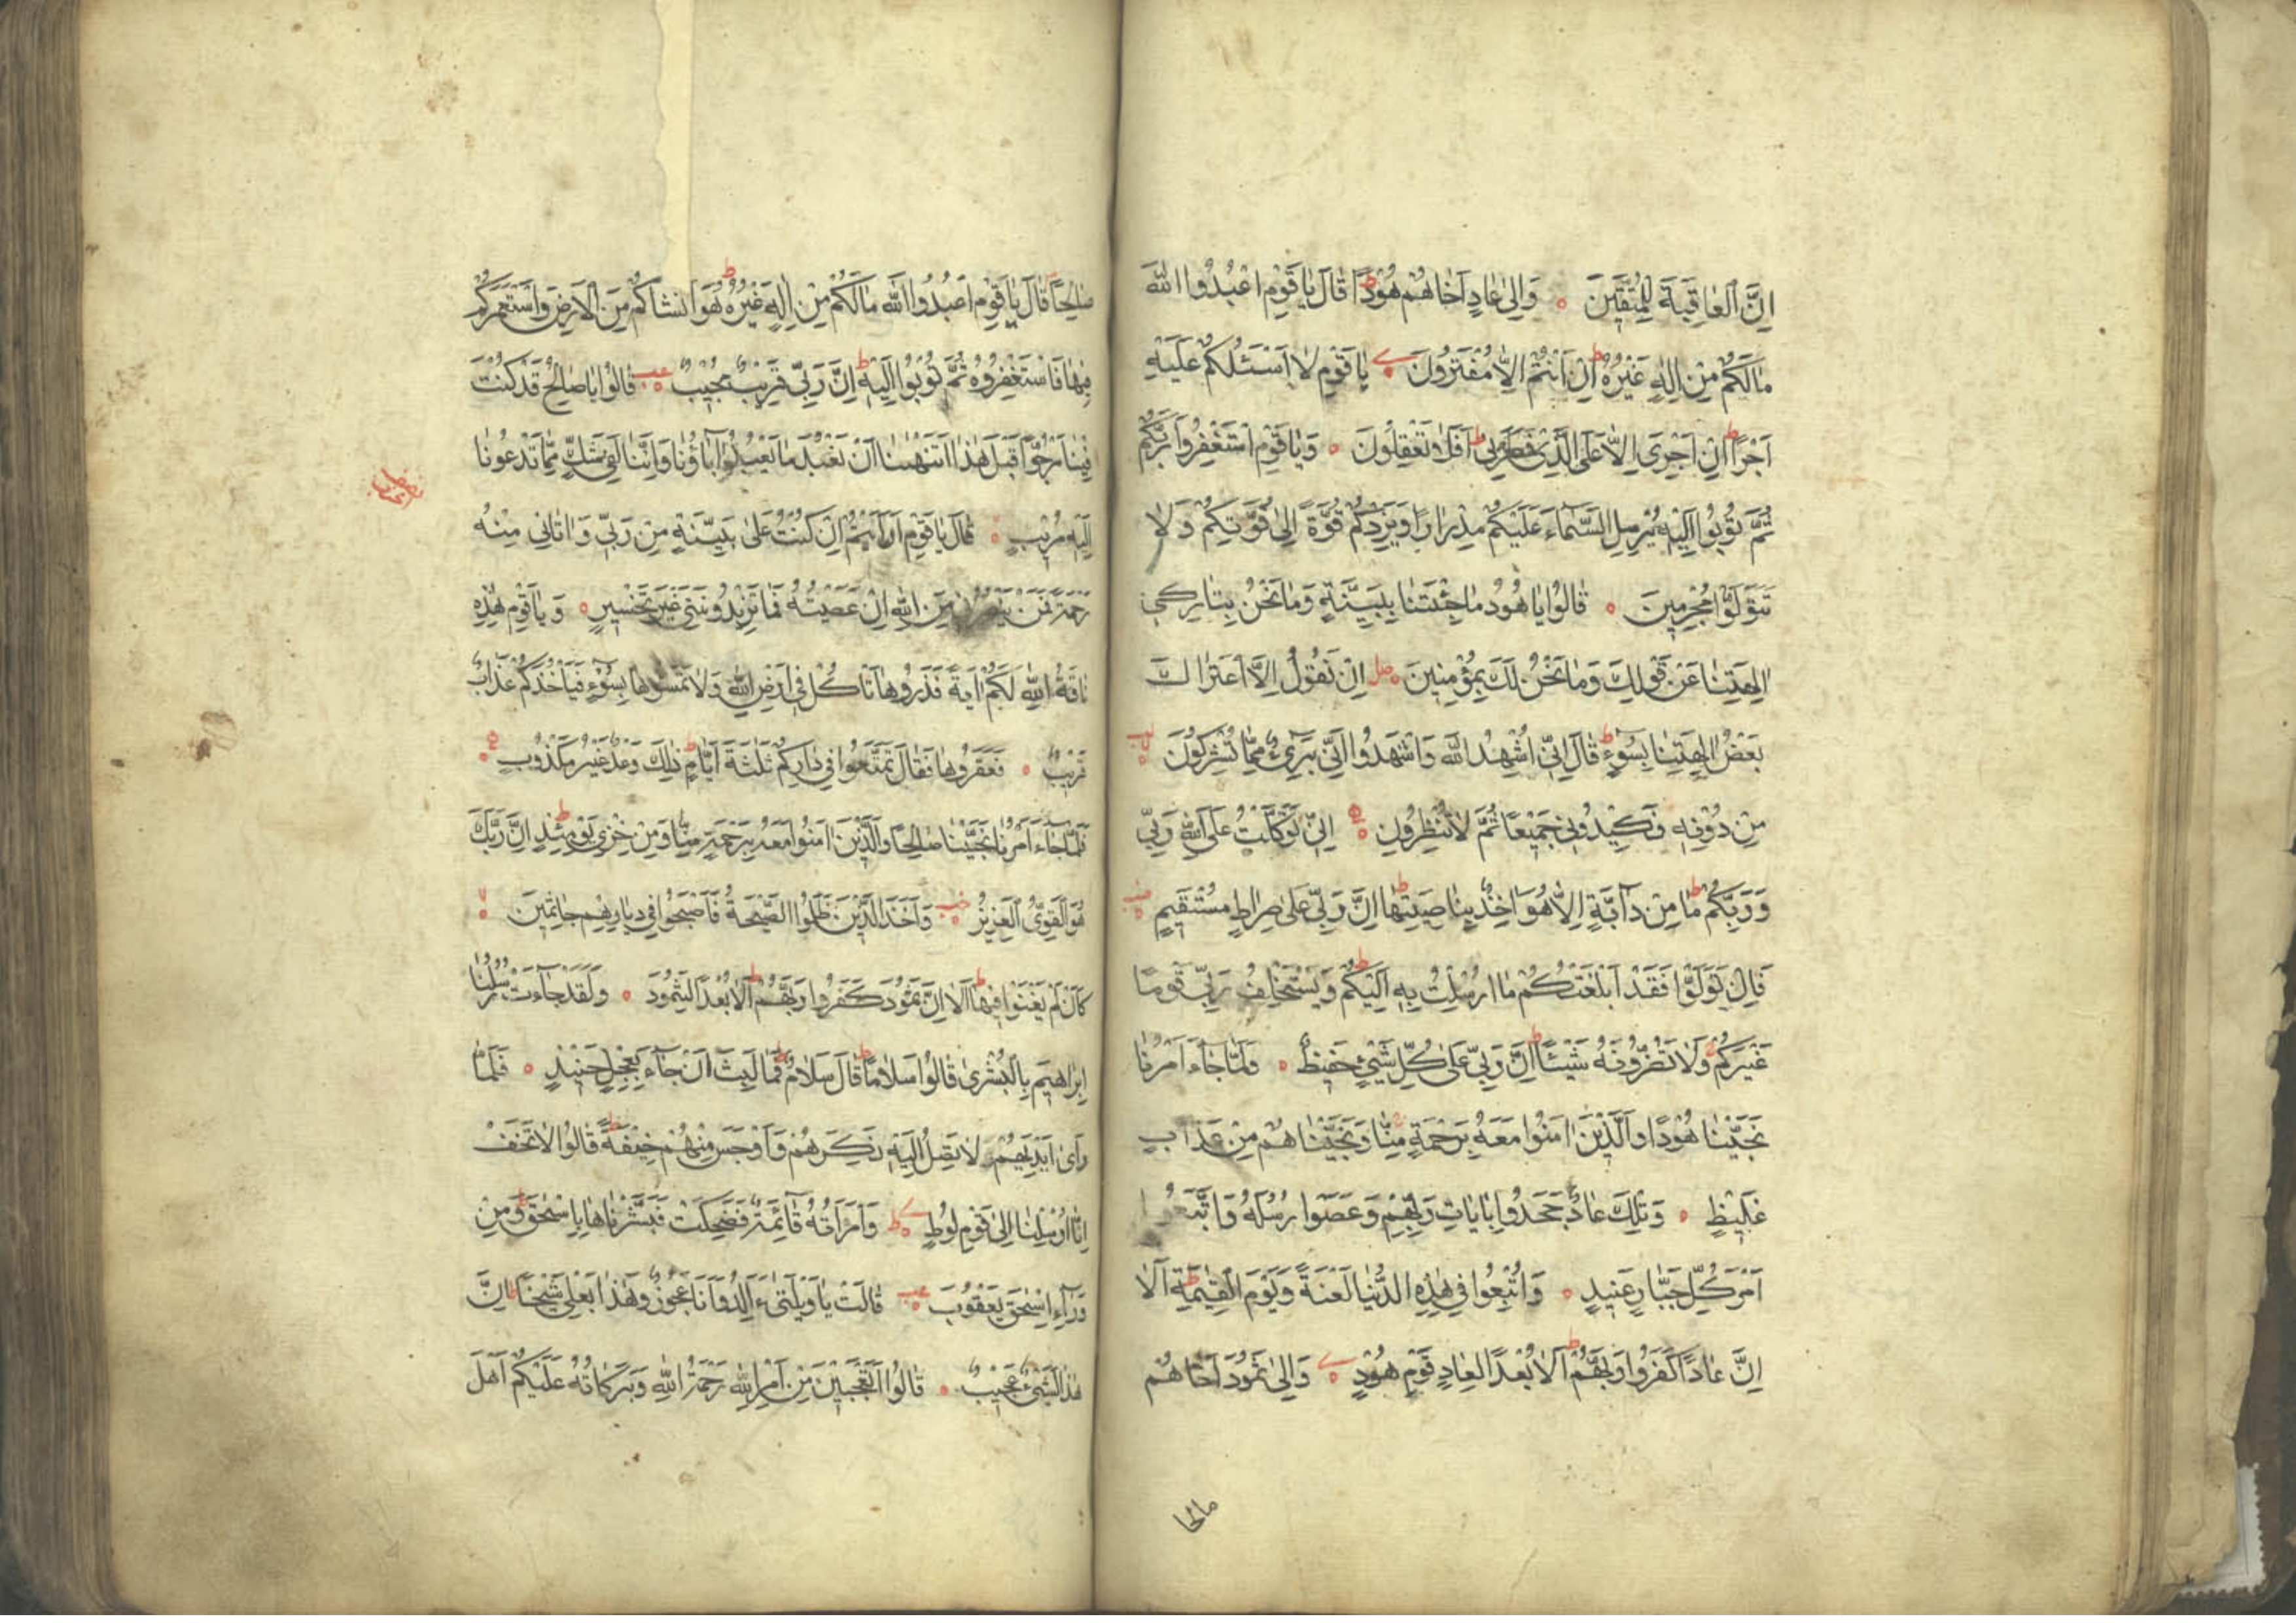 اِنَّ الْعَاقِبَةَ لِلْمُتَّقِينَ ۝ وَاِلٰى عَادٍ اَخَاهُمْ هُودًا ط قَالَ يَا قَوْمِ اعْبُدُوا اللّٰهَ
مَا لَكُمْ مِنْ اِلٰهٍ غَيْرُهُ ط اِنْ اَنْتُمْ اِلَّا مُفْتَرُونَ ۝ يَا قَوْمِ لَا اَسْئَلُكُمْ عَلَيْهِ
اَجْرًا ط اِنْ اَجْرِيَ اِلَّا عَلَى الَّذِي فَطَرَنِي ط اَفَلَا تَعْقِلُونَ ۝ وَيَا قَوْمِ اسْتَغْفِرُوا رَبَّكُمْ
ثُمَّ تُوبُوا اِلَيْهِ يُرْسِلِ السَّمَاءَ عَلَيْكُمْ مِدْرَارًا وَيَزِدْكُمْ قُوَّةً اِلٰى قُوَّتِكُمْ وَلَا
تَتَوَلَّوْا مُجْرِمِينَ ۝ قَالُوا يَا هُودُ مَا جِئْتَنَا بِبَيِّنَةٍ وَمَا نَحْنُ بِتَارِكِي
اٰلِهَتِنَا عَنْ قَوْلِكَ وَمَا نَحْنُ لَكَ بِمُؤْمِنِينَ ۝ اِنْ نَقُولُ اِلَّا اعْتَرٰاكَ
بَعْضُ اٰلِهَتِنَا بِسُوءٍ ط قَالَ اِنِّي اُشْهِدُ اللّٰهَ وَاشْهَدُوا اَنِّي بَرِيءٌ مِمَّا تُشْرِكُونَ ۝
مِنْ دُونِهِ فَكِيدُونِي جَمِيعًا ثُمَّ لَا تُنْظِرُونِ ۝ اِنِّي تَوَكَّلْتُ عَلَى اللّٰهِ رَبِّي
وَرَبِّكُمْ ط مَا مِنْ دَابَّةٍ اِلَّا هُوَ اٰخِذٌ بِنَاصِيَتِهَا ط اِنَّ رَبِّي عَلٰى صِرَاطٍ مُسْتَقِيمٍ ۝
فَاِنْ تَوَلَّوْا فَقَدْ اَبْلَغْتُكُمْ مَا اُرْسِلْتُ بِهِ اِلَيْكُمْ ط وَيَسْتَخْلِفُ رَبِّي قَوْمًا
غَيْرَكُمْ وَلَا تَضُرُّونَهُ شَيْئًا ط اِنَّ رَبِّي عَلٰى كُلِّ شَيْءٍ حَفِيظٌ ۝ وَلَمَّا جَاءَ اَمْرُنَا
نَجَّيْنَا هُودًا وَالَّذِينَ اٰمَنُوا مَعَهُ بِرَحْمَةٍ مِنَّا وَنَجَّيْنَاهُمْ مِنْ عَذَابٍ
غَلِيظٍ ۝ وَتِلْكَ عَادٌ جَحَدُوا بِاٰيَاتِ رَبِّهِمْ وَعَصَوْا رُسُلَهُ وَاتَّبَعُوا
اَمْرَ كُلِّ جَبَّارٍ عَنِيدٍ ۝ وَاُتْبِعُوا فِي هٰذِهِ الدُّنْيَا لَعْنَةً وَيَوْمَ الْقِيٰمَةِ ط اَلَا
اِنَّ عَادًا كَفَرُوا رَبَّهُمْ ط اَلَا بُعْدًا لِعَادٍ قَوْمِ هُودٍ ۝ وَاِلٰى ثَمُودَ اَخَاهُمْ
صَالِحًا قَالَ يَا قَوْمِ اعْبُدُوا اللّٰهَ مَا لَكُمْ مِنْ اِلٰهٍ غَيْرُهُ ط هُوَ اَنْشَاَكُمْ مِنَ الْاَرْضِ وَاسْتَعْمَرَكُمْ
فِيهَا فَاسْتَغْفِرُوهُ ثُمَّ تُوبُوا اِلَيْهِ ط اِنَّ رَبِّي قَرِيبٌ مُجِيبٌ ۝ قَالُوا يَا صَالِحُ قَدْ كُنْتَ
فِينَا مَرْجُوًّا قَبْلَ هٰذَا اَتَنْهٰينَا اَنْ نَعْبُدَ مَا يَعْبُدُ اٰبَاؤُنَا وَاِنَّنَا لَفِي شَكٍّ مِمَّا تَدْعُونَا
اِلَيْهِ مُرِيبٍ ۝ قَالَ يَا قَوْمِ اَرَاَيْتُمْ اِنْ كُنْتُ عَلٰى بَيِّنَةٍ مِنْ رَبِّي وَاٰتَانِي مِنْهُ
رَحْمَةً فَمَنْ يَنْصُرُنِي مِنَ اللّٰهِ اِنْ عَصَيْتُهُ فَمَا تَزِيدُونَنِي غَيْرَ تَخْسِيرٍ ۝ وَيَا قَوْمِ هٰذِهِ
نَاقَةُ اللّٰهِ لَكُمْ اٰيَةً فَذَرُوهَا تَأْكُلْ فِي اَرْضِ اللّٰهِ وَلَا تَمَسُّوهَا بِسُوءٍ فَيَأْخُذَكُمْ عَذَابٌ
قَرِيبٌ ۝ فَعَقَرُوهَا فَقَالَ تَمَتَّعُوا فِي دَارِكُمْ ثَلٰثَةَ اَيَّامٍ ط ذٰلِكَ وَعْدٌ غَيْرُ مَكْذُوبٍ ۝
فَلَمَّا جَاءَ اَمْرُنَا نَجَّيْنَا صَالِحًا وَالَّذِينَ اٰمَنُوا مَعَهُ بِرَحْمَةٍ مِنَّا وَمِنْ خِزْيِ يَوْمِئِذٍ ط اِنَّ رَبَّكَ
هُوَ الْقَوِيُّ الْعَزِيزُ ۝ وَاَخَذَ الَّذِينَ ظَلَمُوا الصَّيْحَةُ فَاَصْبَحُوا فِي دِيَارِهِمْ جَاثِمِينَ ۝
كَاَنْ لَمْ يَغْنَوْا فِيهَا ط اَلَا اِنَّ ثَمُودَ كَفَرُوا رَبَّهُمْ ط اَلَا بُعْدًا لِثَمُودَ ۝ وَلَقَدْ جَاءَتْ رُسُلُنَا
اِبْرَاهِيمَ بِالْبُشْرٰى قَالُوا سَلَامًا ط قَالَ سَلَامٌ فَمَا لَبِثَ اَنْ جَاءَ بِعِجْلٍ حَنِيذٍ ۝ فَلَمَّا
رَاٰى اَيْدِيَهُمْ لَا تَصِلُ اِلَيْهِ نَكِرَهُمْ وَاَوْجَسَ مِنْهُمْ خِيفَةً ط قَالُوا لَا تَخَفْ
اِنَّا اُرْسِلْنَا اِلٰى قَوْمِ لُوطٍ ۝ وَامْرَاَتُهُ قَائِمَةٌ فَضَحِكَتْ فَبَشَّرْنَاهَا بِاِسْحٰقَ وَمِنْ
وَرَاءِ اِسْحٰقَ يَعْقُوبَ ۝ قَالَتْ يَا وَيْلَتٰى ءَاَلِدُ وَاَنَا عَجُوزٌ وَهٰذَا بَعْلِي شَيْخًا ط اِنَّ
هٰذَا لَشَيْءٌ عَجِيبٌ ۝ قَالُوا اَتَعْجَبِينَ مِنْ اَمْرِ اللّٰهِ رَحْمَةُ اللّٰهِ وَبَرَكَاتُهُ عَلَيْكُمْ اَهْلَ